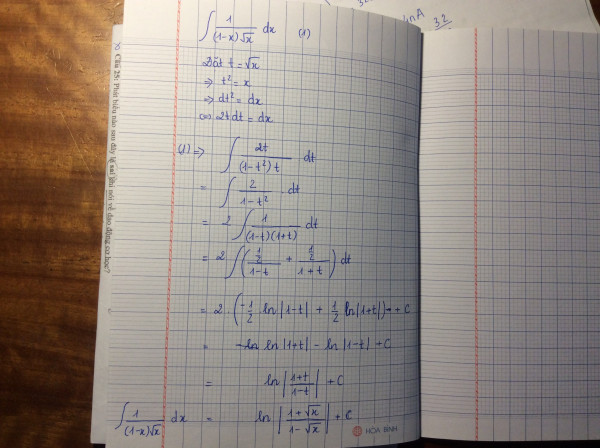 ∫ 1/((1-x)√x) dx (1)
Đặt t = √x
⇒ t² = x
⇒ dt² = dx
⇔ 2tdt = dx
(1) ⇒ ∫ 2t/((1-t²)t) dt
= ∫ 2/(1-t²) . dt
= 2 ∫ 1/((1-t)(1+t)) dt
= 2 ∫ ( (1/2)/(1-t) + (1/2)/(1+t) ) dt
= 2 . ( -1/2 ln|1-t| + 1/2 ln|1+t| ) + C
= ln|1+t| - ln|1-t| + C
= ln |(1+t)/(1-t)| + C
∫ 1/((1-x)√x) dx = ln |(1+√x)/(1-√x)| + C
HÒA BÌNH
Câu 25: Phát biểu nào sau đây là sai khi nói về dao động cơ học?
32